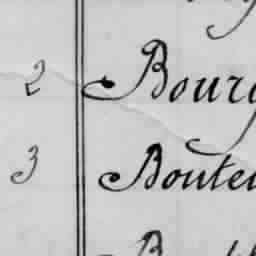 2 Bourg
3 Bouteu